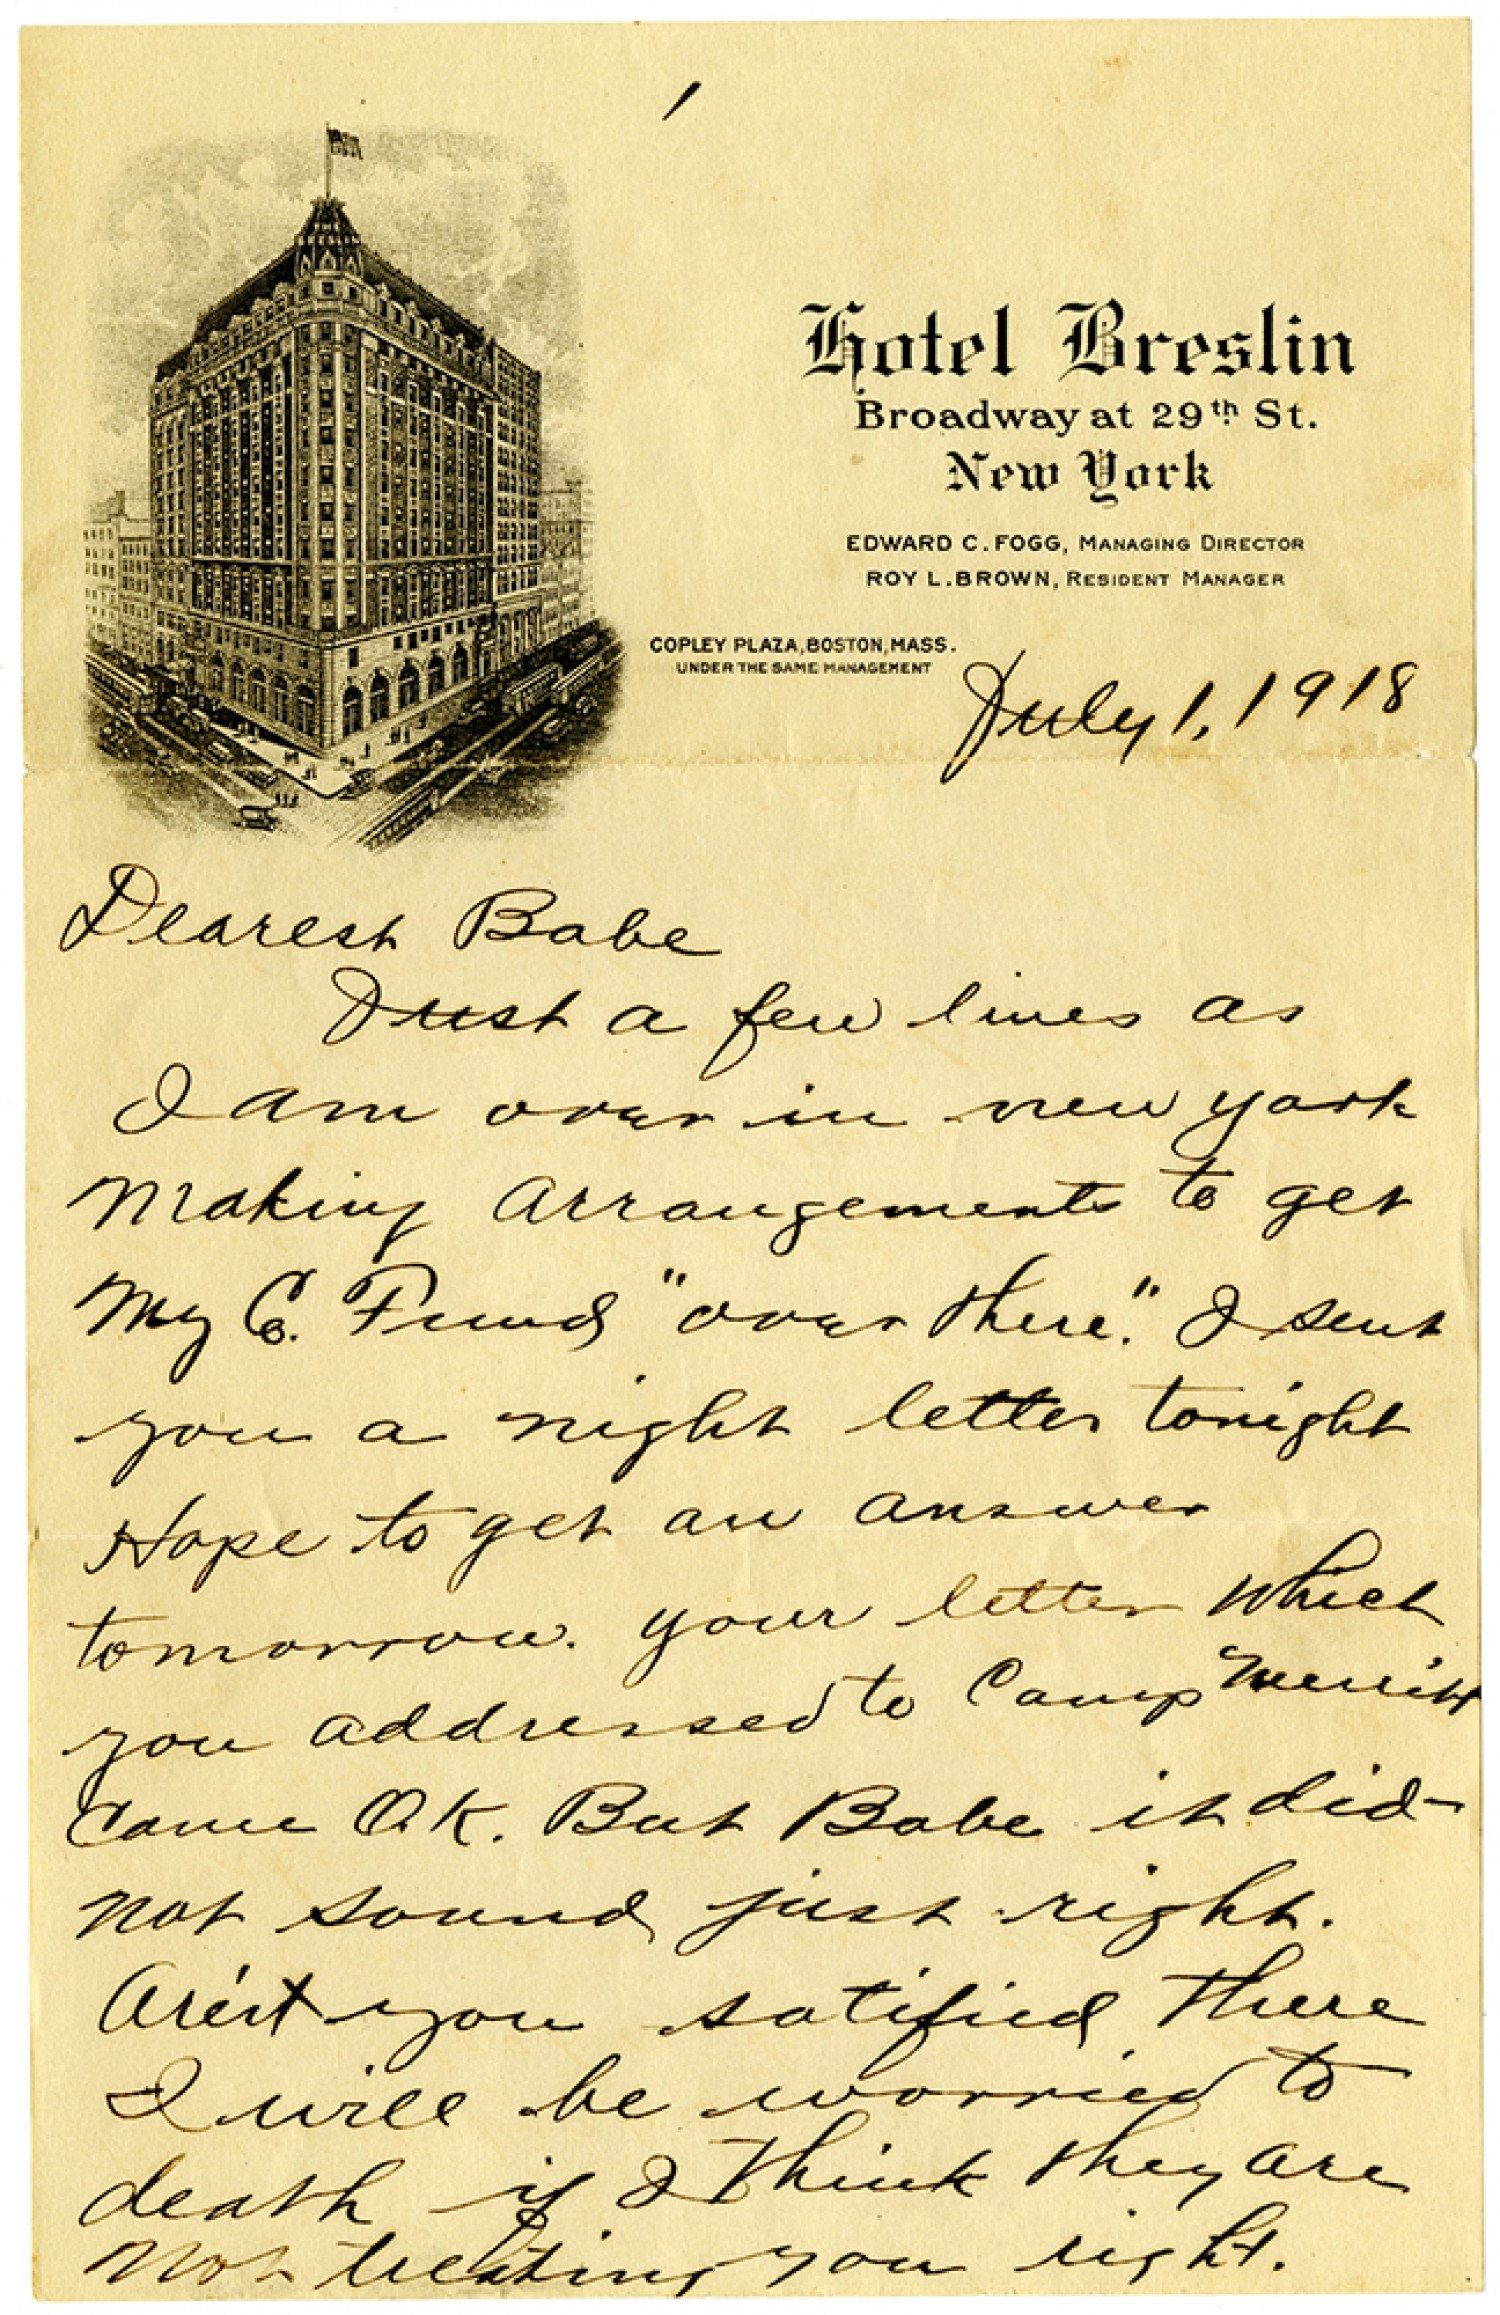 1
Hotel Breslin
Broadway at 29th St.
New York
EDWARD C. FOGG, MANAGING DIRECTOR
ROY L. BROWN, RESIDENT MANAGER
COPLEY PLAZA, BOSTON, MASS.
UNDER THE SAME MANAGEMENT
July 1, 1918
Dearest Babe
Just a few lines as
I am over in new york
Making arrangements to get
My Fund "over there." I sent
you a night letter tonight
Hope to get an answer
tomorrow. your letter which
you addressed to Camp Merritt
Came O.K. But Babe it did
not sound just right.
Are'nt you satified there
I will be worried to
death if I think they are
Not treating you right.